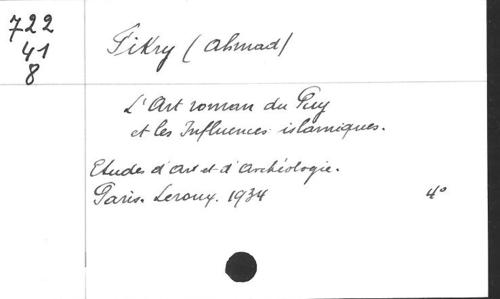 722
41
8
Fikry (Ahmad)
L'Art roman du Puy
et les Influences islamiques.
Etudes d'Art et d'Archéologie.
Paris. Leroux. 1934
4°